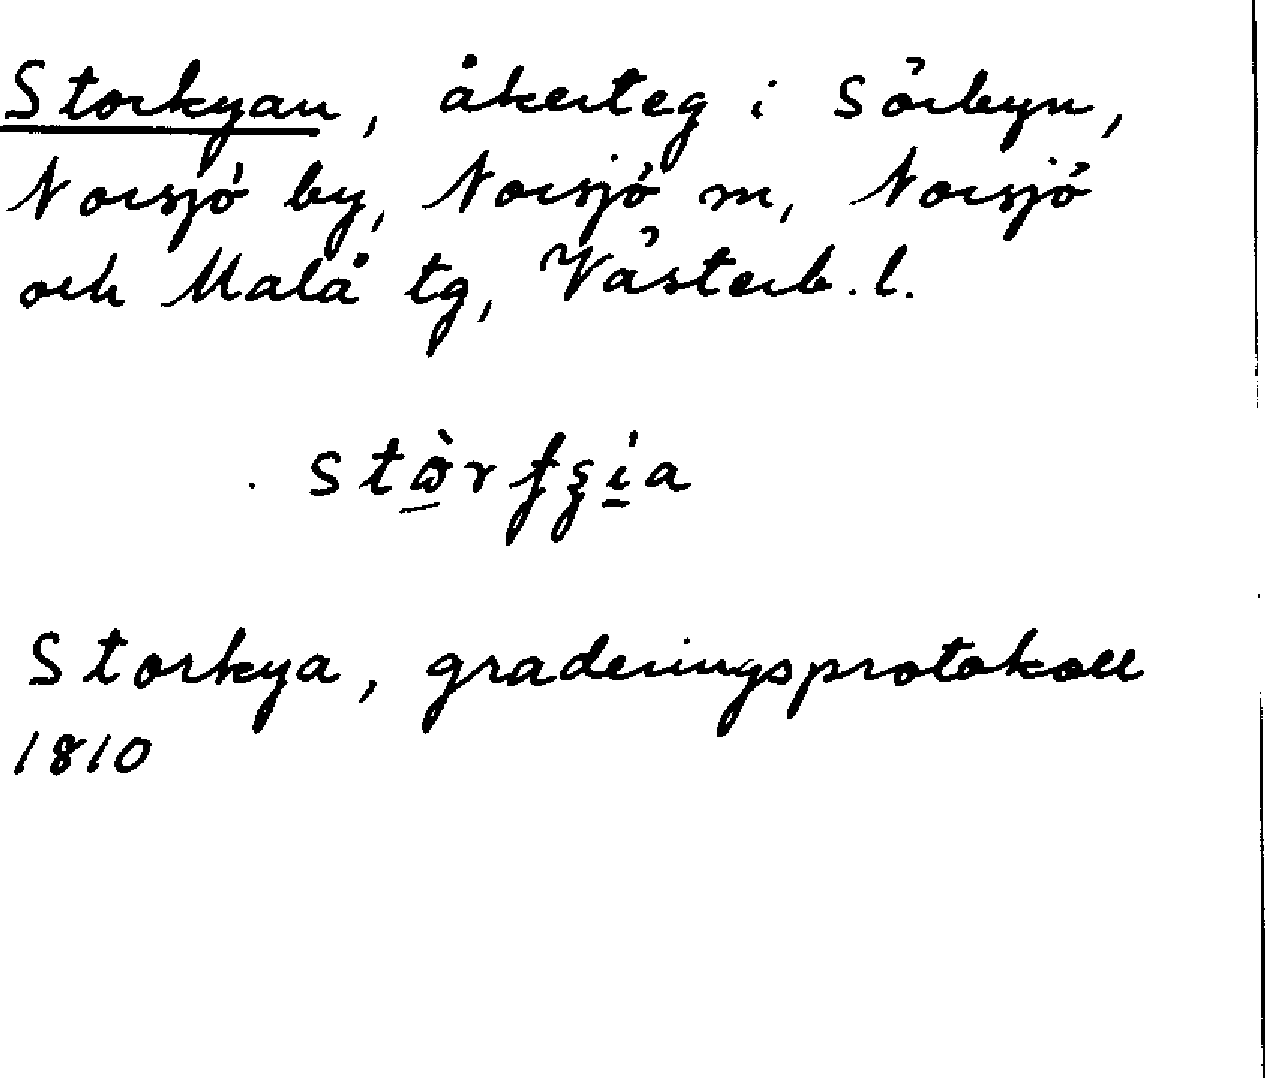 Storkyan, åkerteg i Sörbyn,
Norsjö by, Norsjö sn, Norsjö
och Malå tg, Västerb. l.
Storkya, graderingsprotokoll
1810